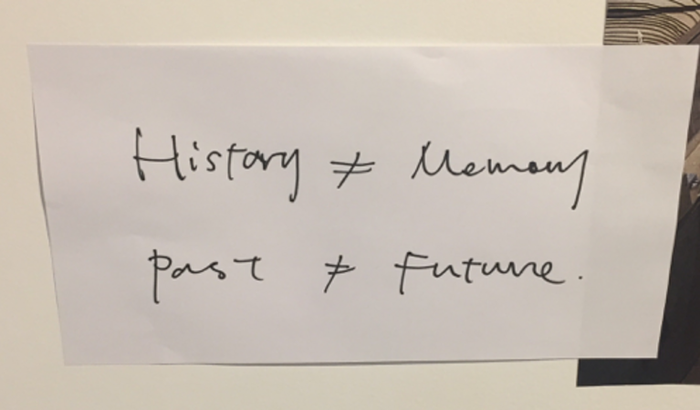 History ≠ Memory
Past ≠ Future.